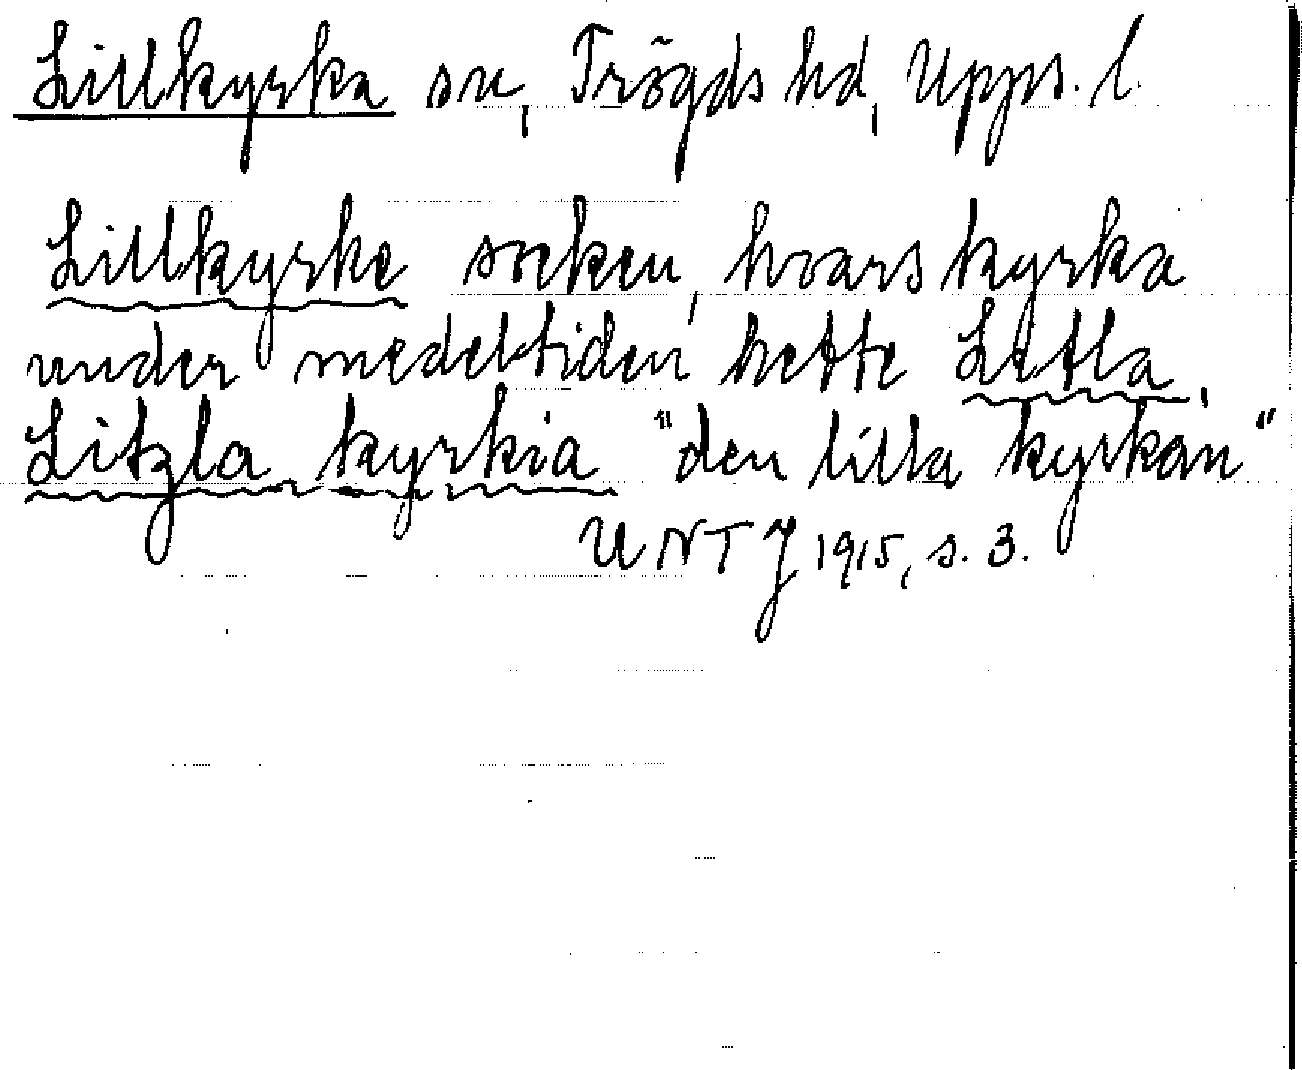 Lillkyrka sn, Trögds hd, Upps. l.
Lillkyrke socken, hvars kyrka
under medeltiden hette Letla,
Litzla kyrkia "den lilla kyrkan"
UNT J 1915, s. 3.